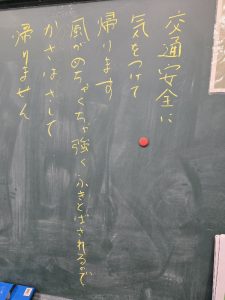 交通安全に
気をつけて
帰ります
風がめちゃくちゃ強くふきとばされるので
かさはさして
帰りません